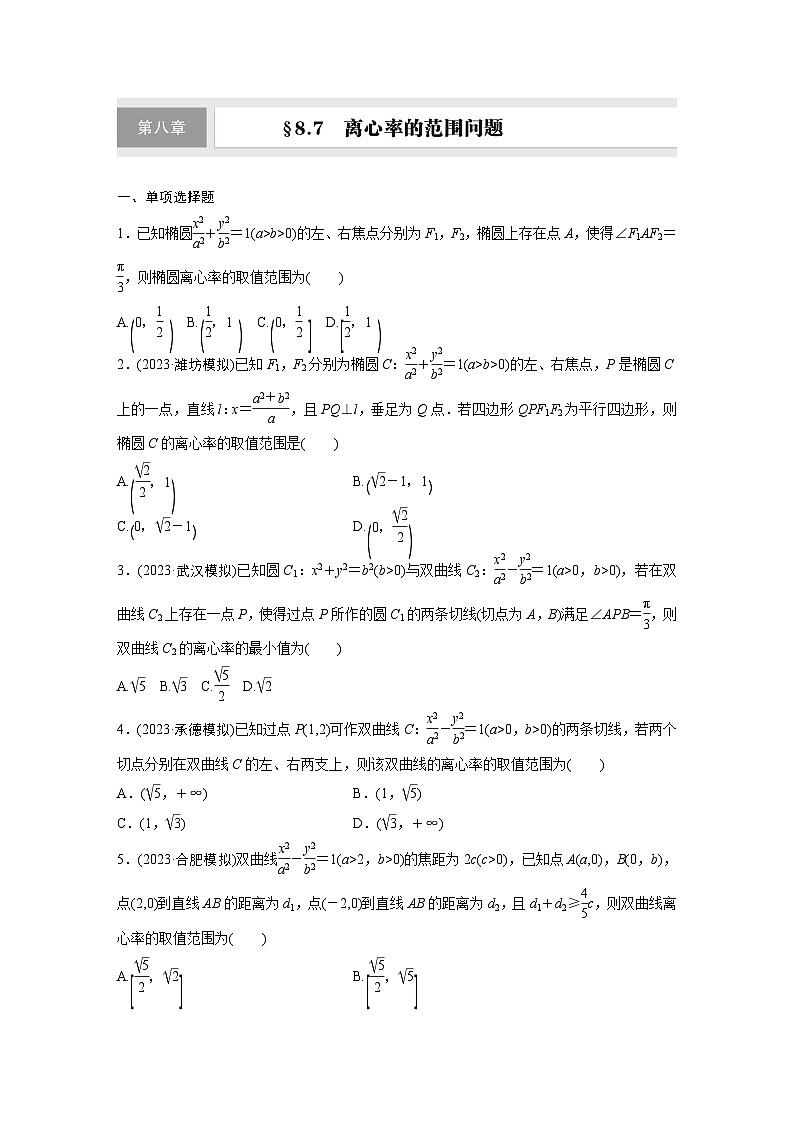 第八章 §8.7 离心率的范围问题
一、单项选择题
1．已知椭圆x²/a²+y²/b²=1(a>b>0)的左、右焦点分别为F₁，F₂，椭圆上存在点A，使得∠F₁AF₂=
π/3，则椭圆离心率的取值范围为(　　)
A.(0，1/2)　B.(1/2，1)　C.(0，1/2]　D.[1/2，1)
2．(2023·潍坊模拟)已知F₁，F₂分别为椭圆C：x²/a²+y²/b²=1(a>b>0)的左、右焦点，P是椭圆C
上的一点，直线l：x=(a²+b²)/a，且PQ⊥l，垂足为Q点．若四边形QPF₁F₂为平行四边形，则
椭圆C的离心率的取值范围是(　　)
A.(√2/2，1)　B.(√2-1，1)
C.(0，√2-1)　D.(0，√2/2)
3．(2023·武汉模拟)已知圆C₁：x²+y²=b²(b>0)与双曲线C₂：x²/a²-y²/b²=1(a>0，b>0)，若在双
曲线C₂上存在一点P，使得过点P所作的圆C₁的两条切线(切点为A，B)满足∠APB=π/3，则
双曲线C₂的离心率的最小值为(　　)
A.√5　B.√3　C.√5/2　D.√2
4．(2023·承德模拟)已知过点P(1,2)可作双曲线C：x²/a²-y²/b²=1(a>0，b>0)的两条切线，若两个
切点分别在双曲线C的左、右两支上，则该双曲线的离心率的取值范围为(　　)
A．(√5，+∞)　B．(1，√5)
C．(1，√3)　D．(√3，+∞)
5．(2023·合肥模拟)双曲线x²/a²-y²/b²=1(a>2，b>0)的焦距为2c(c>0)，已知点A(a,0)，B(0，b)，
点(2,0)到直线AB的距离为d₁，点(-2,0)到直线AB的距离为d₂，且d₁+d₂≥4/5c，则双曲线离
心率的取值范围为(　　)
A.[√5/2，√2]　B.[√5/2，√5]